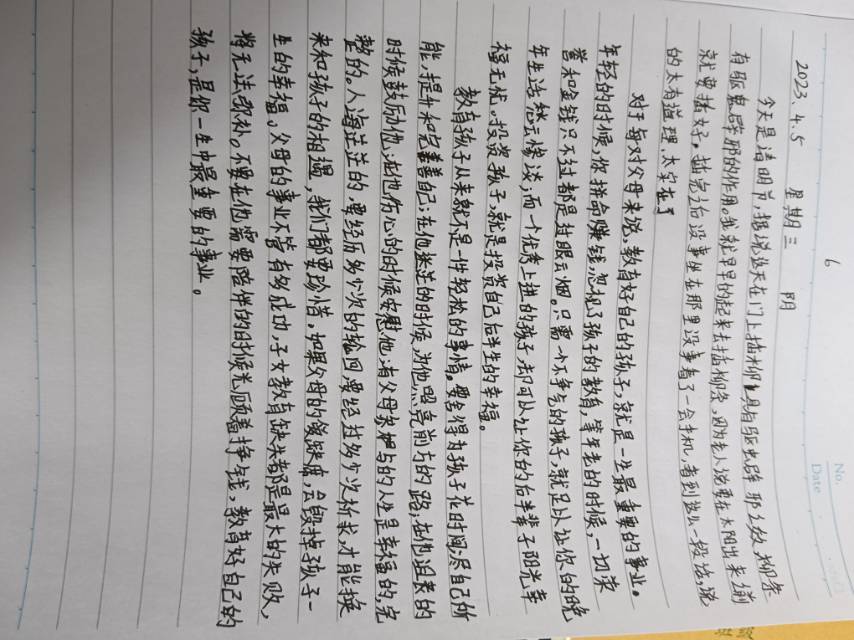 6
No.
Date
2023.4.5 星期三 阴
今天是清明节,据说这天在门上插柳具有驱虫辟邪之效,柳条
有驱鬼辟邪的作用。我就早早的起来去插柳条,因为老人说要在太阳出来前
就要插好。插完之后没事坐在那里没事看了一会手机,看到这么一段话,说
的太有道理 太实在了
对于每对父母来说,教育好自己的孩子,就是一生最重要的事业。
年轻的时候,你拼命赚钱,忽视了孩子的教育,等年老的时候,一切荣
誉和金钱只不过都是过眼云烟。只需一个不争气的孩子,就足以让你的晚
年生活愁云惨淡;而一个优秀上进的孩子却可以让你的后半辈子阳光幸
福无忧。投资孩子,就是投资自己后半生的幸福。
教育孩子从来就不是一件轻松的事情。要舍得为孩子花时间;尽自己所
能,提升和完善自己;在他迷茫的时候,为他照亮前方的路;在他沮丧的
时候鼓励他;在他伤心的时候安慰他;有父母参与的人生是幸福的,完
整的。人海茫茫的,要经历多少次的轮回要经过多少次祈求,才能换
来和孩子的相遇,我们都要珍惜。如果父母的缺席,会毁掉孩子一
生的幸福。父母的事业不管有多成功,子女教育缺失都是最大的失败,
将无法弥补。不要在他需要陪伴的时候光顾着挣钱,教育好自己的
孩子,是你一生中最重要的事业。
班级